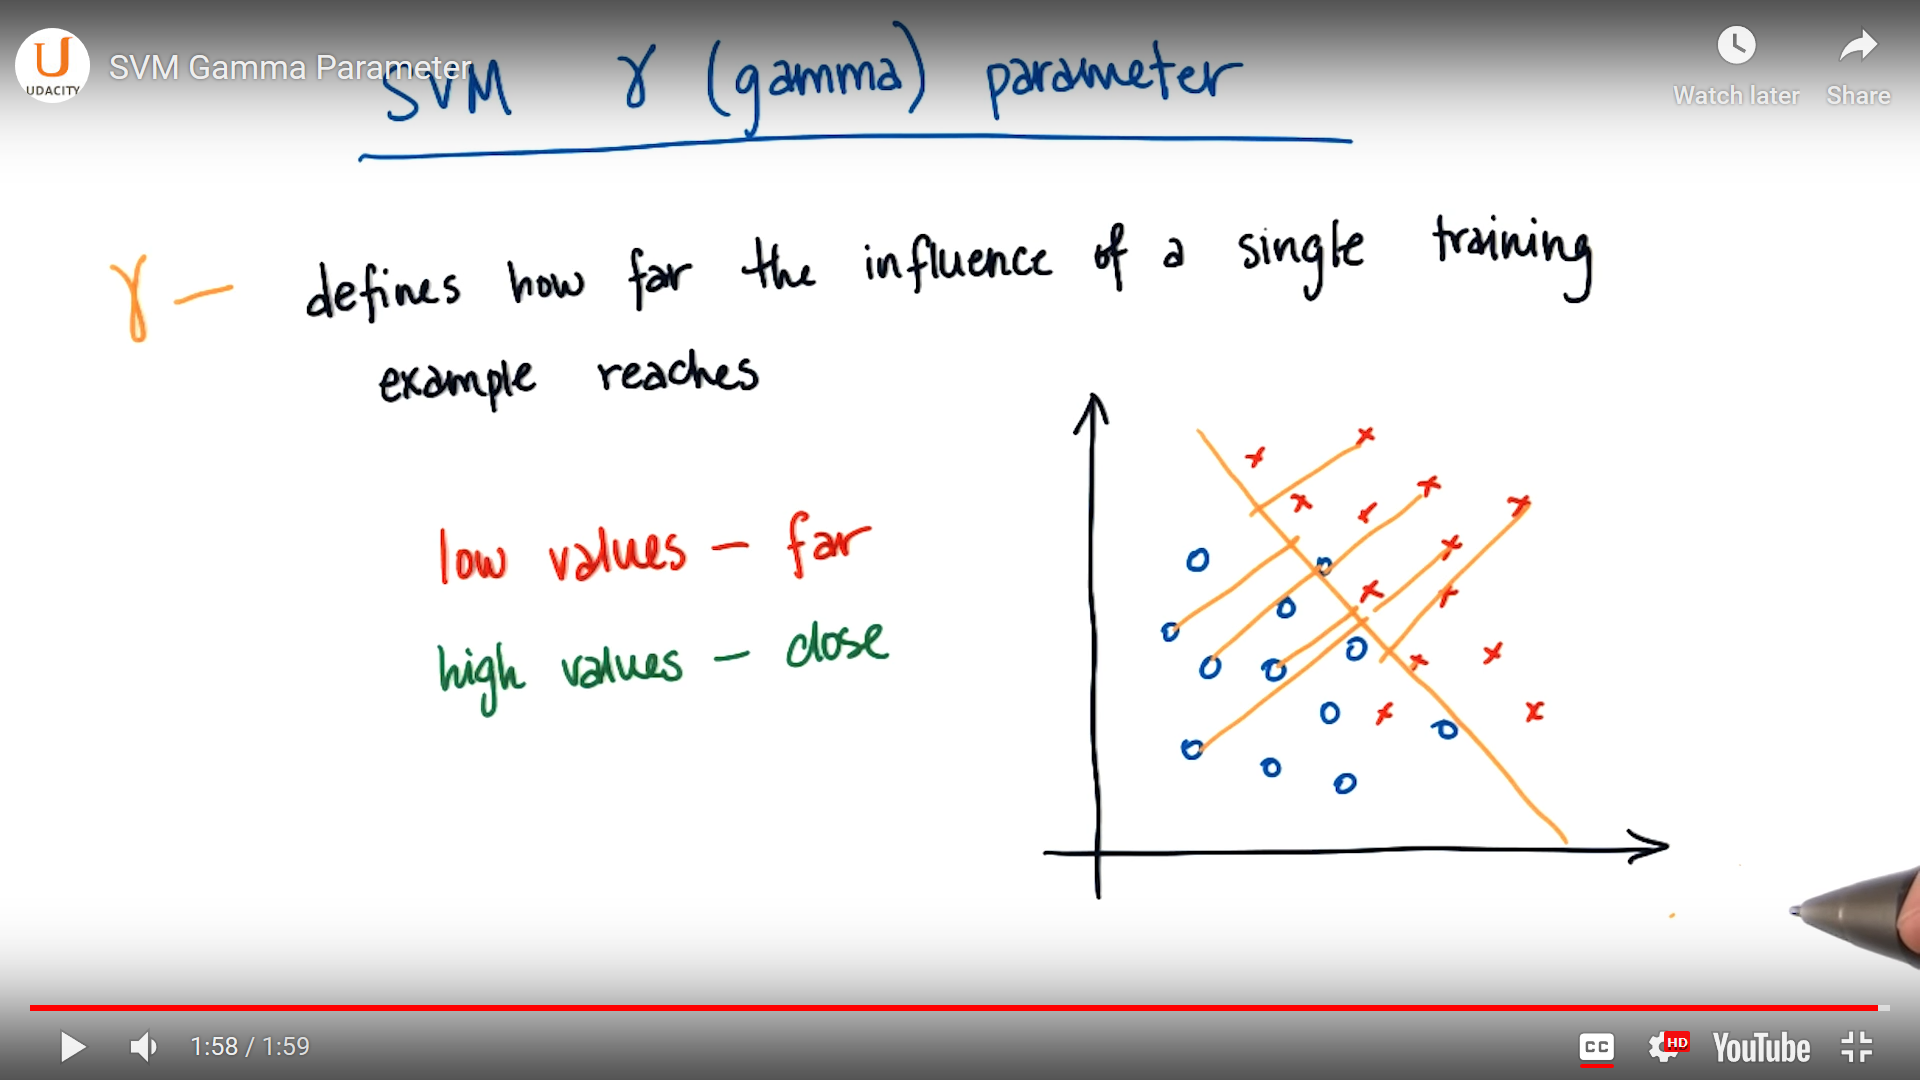 SVM Gamma Parameter
UDACITY
Watch later
Share
SVM γ (gamma) parameter
γ — defines how far the influence of a single training
example reaches
low values — far
high values — close
1:58 / 1:59
CC
HD
YouTube